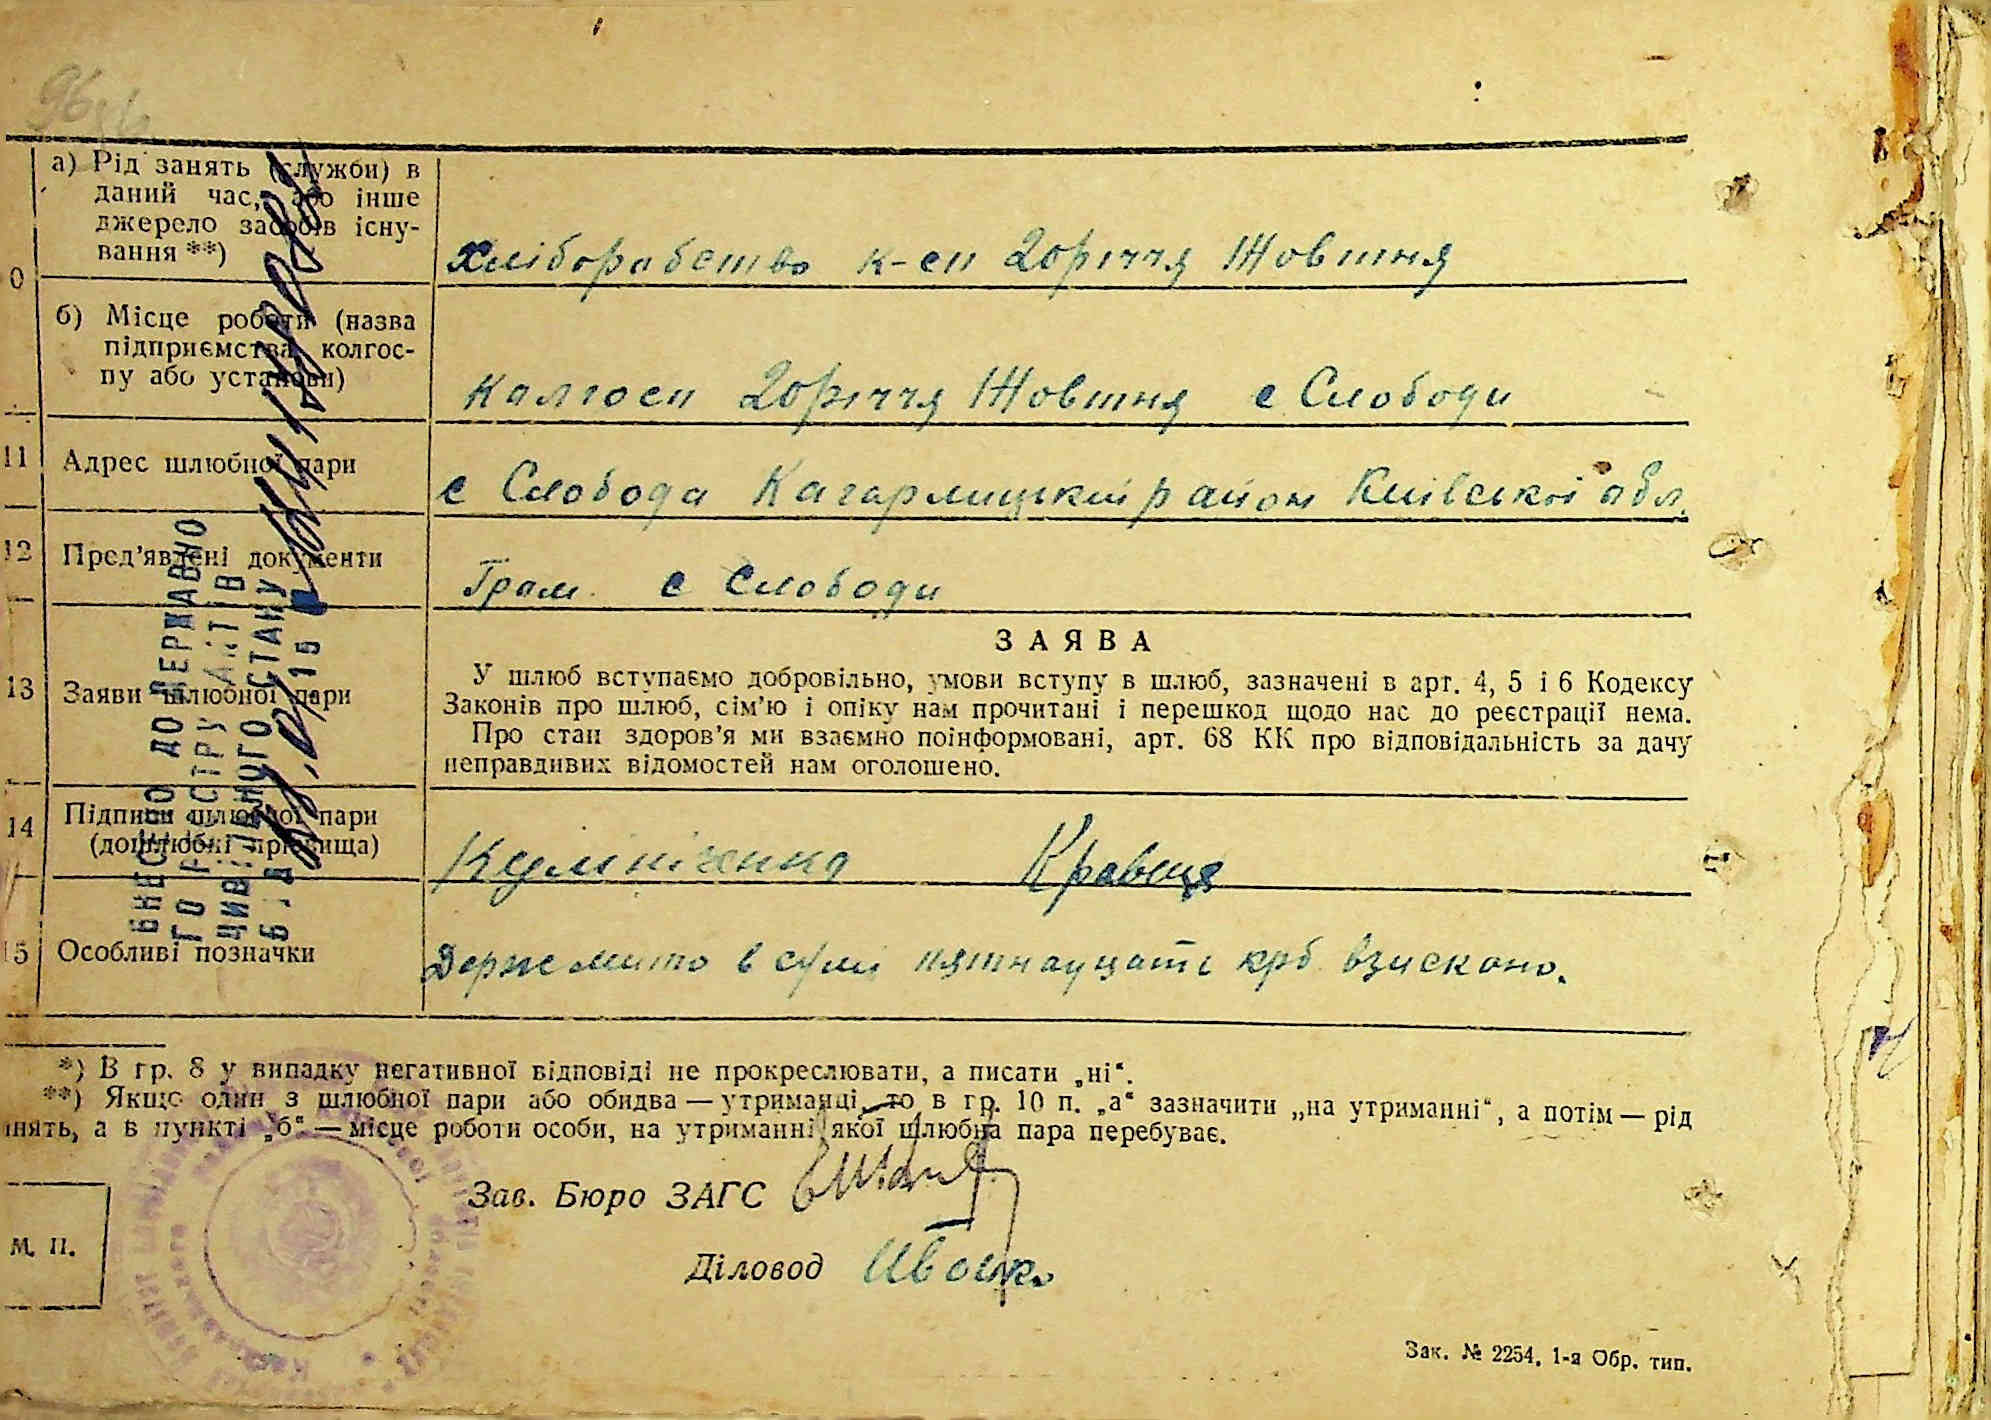 а) Рід занять (служби) в
даний час, або інше
джерело засобів існу-
вання **)
хліборабство к-сп 20річчя Жовтня
0
б) Місце роботи (назва
підприємства, колгос-
пу або установи)
Калгосп 20річчя Жовтня с Слободи
11 Адрес шлюбної пари
с Слобода Кагарлицький район Київської обл.
12 Пред’явлені документи
Грам. с Слободи
13 Заяви шлюбної пари
ЗАЯВА
У шлюб вступаємо добровільно, умови вступу в шлюб, зазначені в арт. 4, 5 і 6 Кодексу
Законів про шлюб, сім’ю і опіку нам прочитані і перешкод щодо нас до реєстрації нема.
Про стан здоров’я ми взаємно поінформовані, арт. 68 КК про відповідальність за дачу
неправдивих відомостей нам оголошено.
14 Підписи шлюбної пари
(дошлюбні прізвища)
Кулініченко Кравець
15 Особливі позначки
Держмито в сумі пятнацать крб взискано.
ВНЕСЕНО ДО ДЕРЖАВНО
ГО РЕЄСТРУ АКТІВ
ЦИВІЛЬНОГО СТАНУ
*) В гр. 8 у випадку негативної відповіді не прокреслювати, а писати „ні“.
**) Якщо один з шлюбної пари або обидва — утриманці, то в гр. 10 п. „а“ зазначити „на утриманні“, а потім — рід
нять, а в пункті „б“ — місце роботи особи, на утриманні якої шлюбна пара перебуває.
Зав. Бюро ЗАГС
М. П.
Діловод
Зак. № 2254, 1-а Обр. тип.